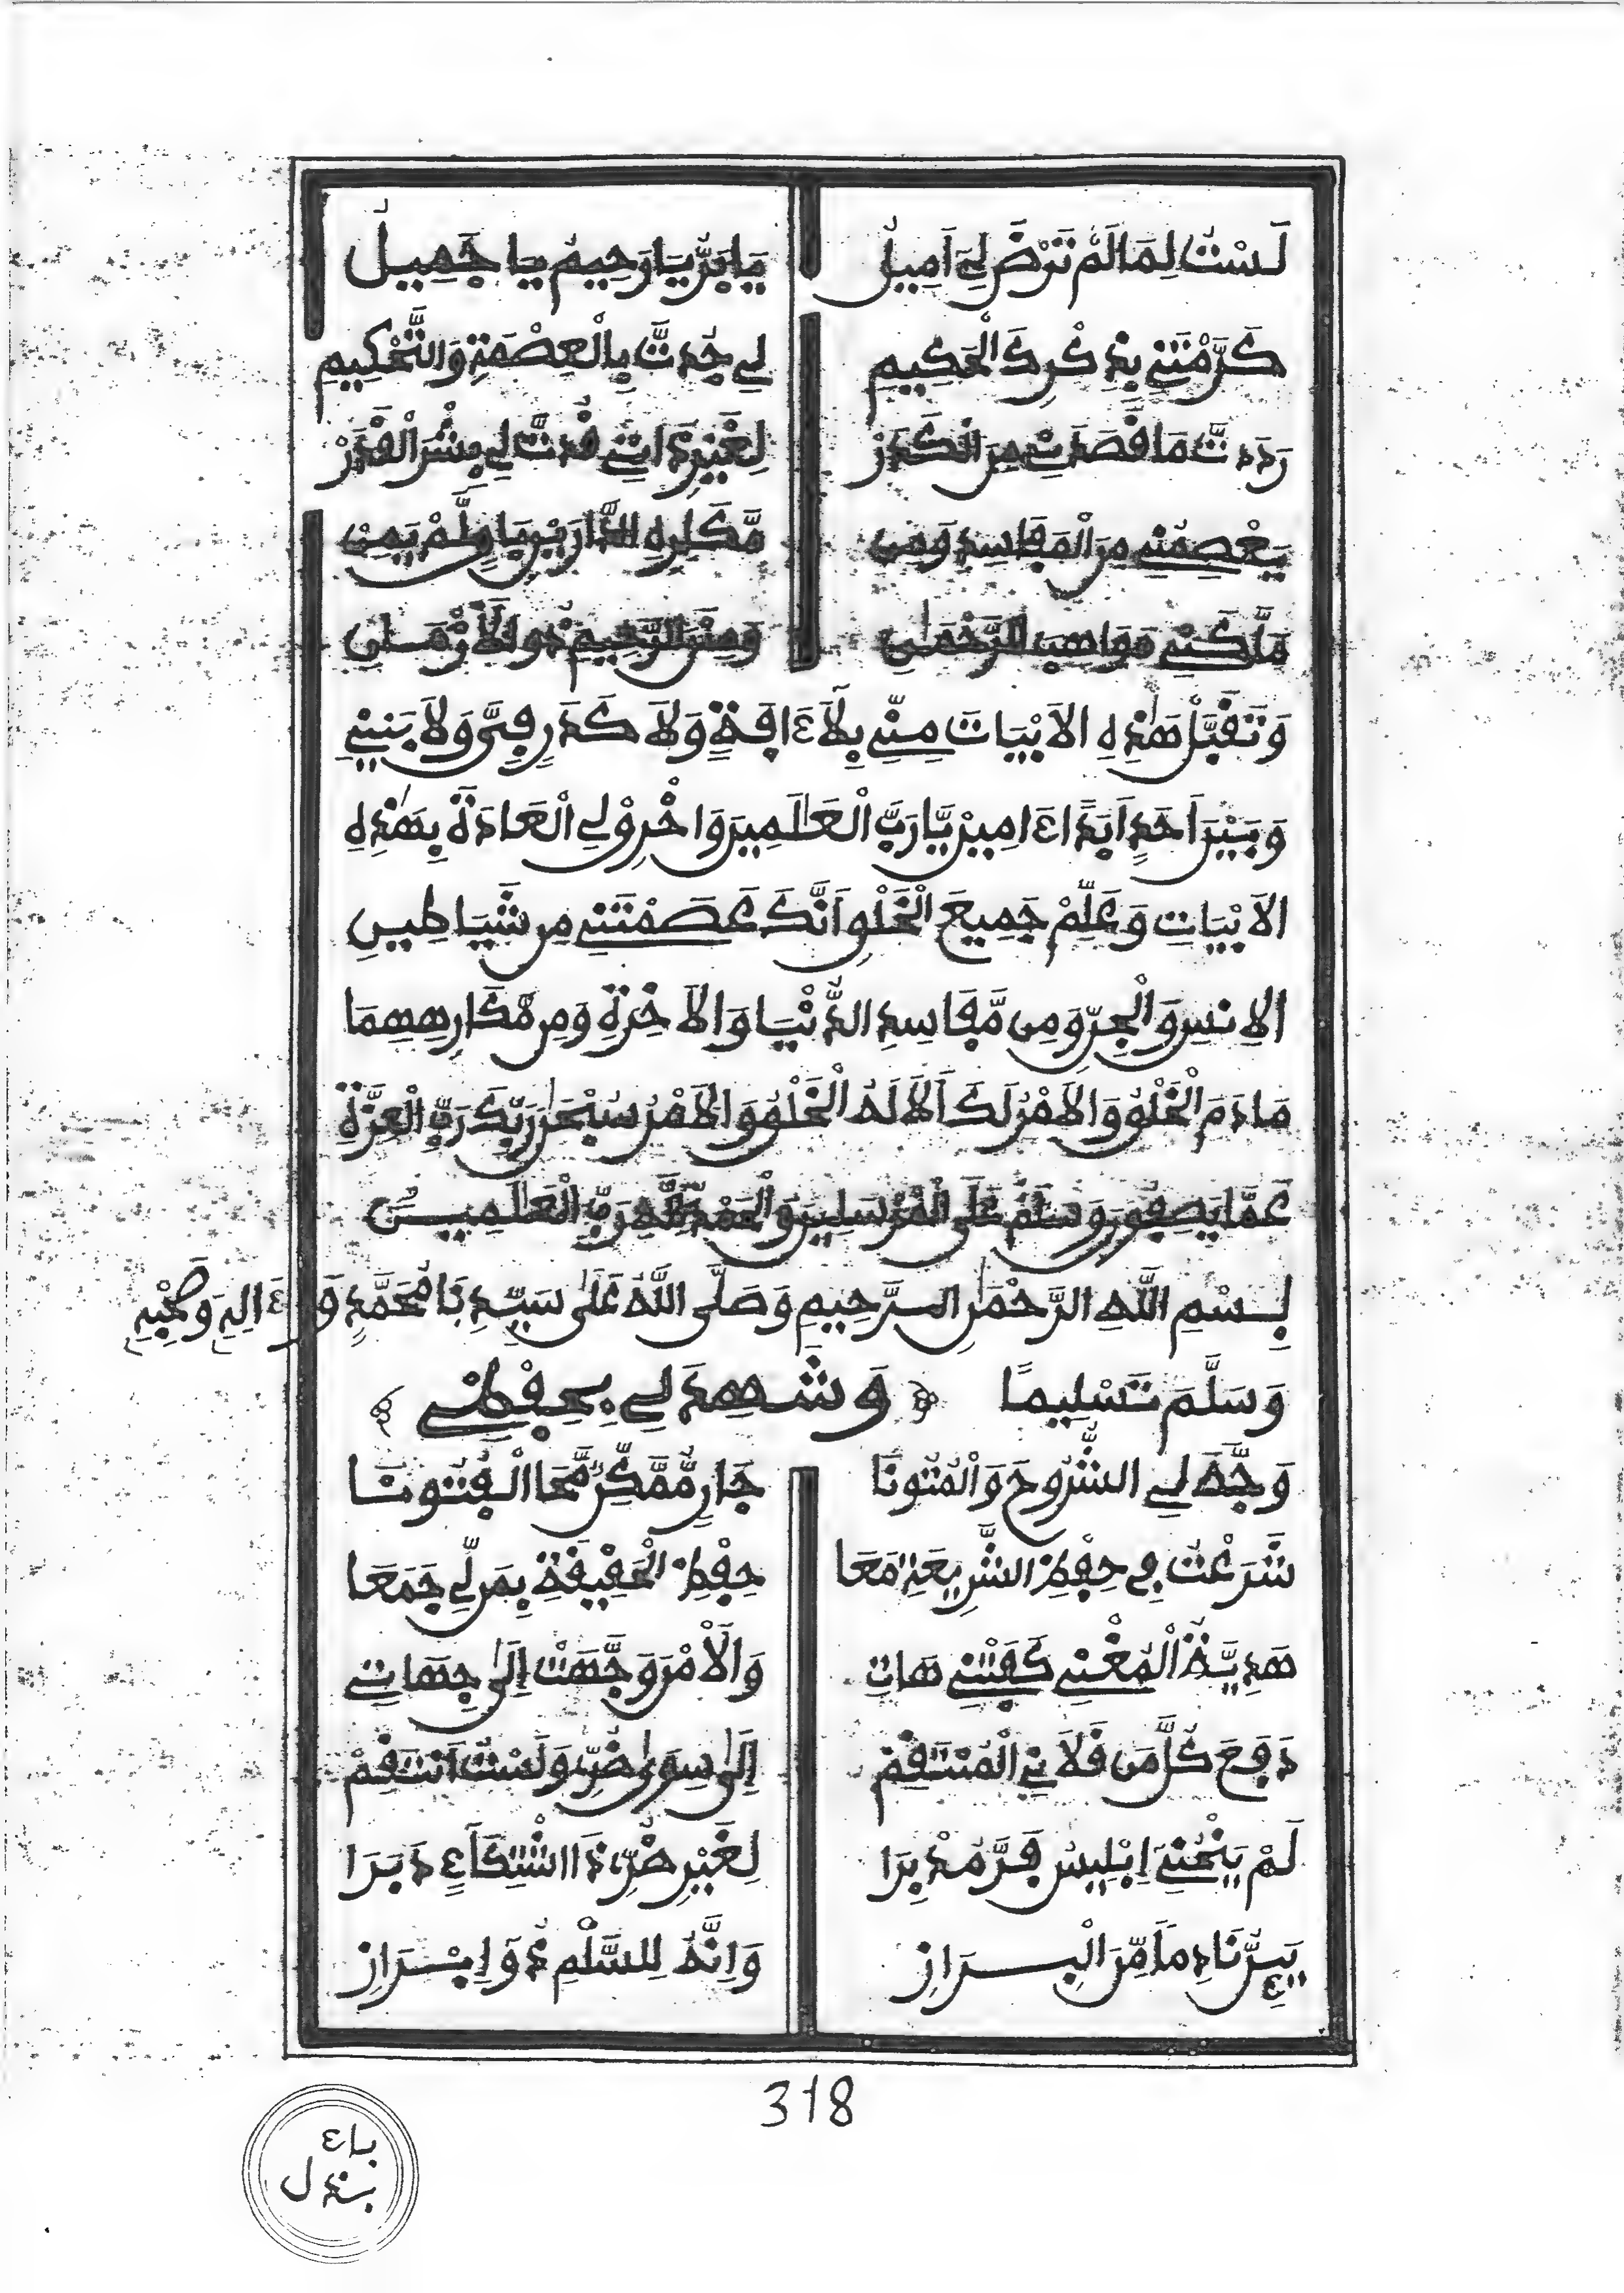 لَسْتُ لِمَا لَمْ تَرْضَ لِي أَمِيلُ يَا بَرُّ يَا رَحِيمُ يَا جَمِيلُ
كَرَّمْتَنِي بِذِكْرِكَ الْحَكِيمِ لِي جُدتَّ بِالْعِصْمَةِ وَالتَّحْكِيمِ
رَدَدتَّ مَا قَصَدَنِي مِنَ الْكَدَرْ لِغَيْرِ ذَاتِي قُدتَّ لِي بِشْرَ الْقَدَرْ
يَعْصِمُنِي مِنَ الْمَفَاسِدِ وَمِن مَّكَارِهِ الدَّارَيْنِ
مَلَّكَنِي مَوَاهِبَ الرَّحْمَانِ وَمِنَنَ الرَّحِيمِ ذُو الْأَزْمَانِ
وَتَقَبَّلْ هَٰذِهِ الْأَبْيَاتَ مِنِّي بِلَا ءَافَةٍ وَلَا كَدَرٍ فِيَّ وَلَا بَيْنِي
وَبَيْنَ أَحَدٍ أَبَدًا ءَامِينَ يَّا رَبَّ الْعَالَمِينَ وَاخْرِقْ لِي الْعَادَةَ بِهَٰذِهِ
الْأَبْيَاتِ وَعَلِّمْ جَمِيعَ الْخَلْقِ أَنَّكَ عَصَمْتَنِي مِن شَيَاطِينِ
الْإِنسِ وَالْجِنِّ وَمِن مَّفَاسِدِ الدُّنْيَا وَالْآخِرَةِ وَمِن مَّكَارِهِهِمَا
مَا دَامَ الْخَلْقُ وَالْأَمْرُ لَكَ أَلَا لَهُ الْخَلْقُ وَالْأَمْرُ سُبْحَٰنَ رَبِّكَ رَبِّ الْعِزَّةِ
عَمَّا يَصِفُونَ وَسَلَٰمٌ عَلَى الْمُرْسَلِينَ وَالْحَمْدُ لِلَّهِ رَبِّ الْعَالَمِينَ
بِسْمِ اللَّهِ الرَّحْمَٰنِ الرَّحِيمِ وَصَلَّى اللَّهُ عَلَىٰ سَيِّدِنَا مُحَمَّدٍ وَءَالِهِ وَصَحْبِهِ
وَسَلَّمَ تَسْلِيمًا وَشَهِدَ لِي بِحِفْظِي
وَجَّهَ لِي الشُّرُوحَ وَالْمُتُونَا جَارٍ مُّمَكِّنٌ مَّحَا الْفُتُونَا
شَرَعْتُ فِي حِفْظِ الشَّرِيعَةِ مَعَا حِفْظِ الْحَقِيقَةِ بِمَن لِّي جَمَعَا
هَدِيَّةُ الْمُغْنِي كَفَتْنِي هَاتِ وَالْأَمْرَ وَجَّهَتْ إِلَىٰ جِهَاتِي
دَفَعَ كُلَّ مَن قَلَانِي الْمُنْتَقِمْ إِلَىٰ سِوَىٰ ضُرِّي وَلَسْتُ أَنتَقِمْ
لَمْ يَنْحُنِي إِبْلِيسُ فَرَّ مُدْبِرَا لِغَيْرِ ضُرِّي ذَا اشْتِكَاءٍ دَبَرَا
الْبِرَازِ وَإِنَّهُ لِلسَّلْمِ ذُو إِبْرَازِ
318